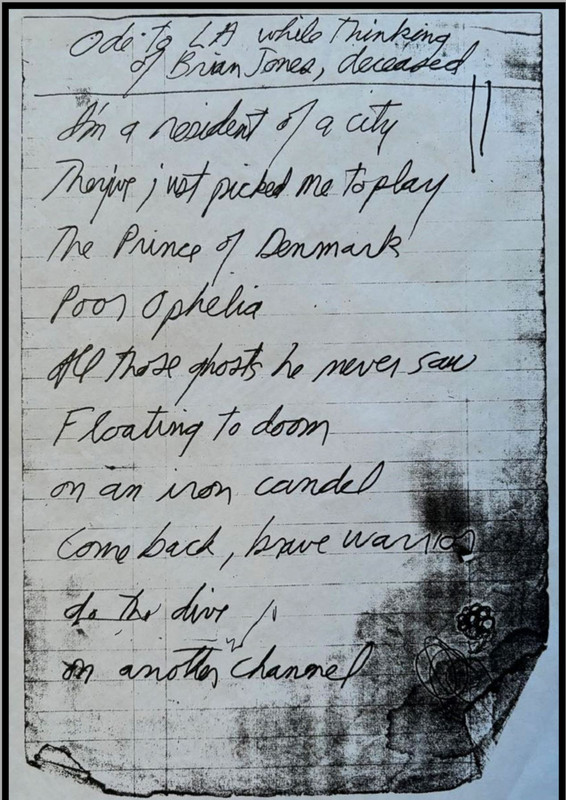 Ode to LA while Thinking
of Brian Jones, deceased
I'm a resident of a city
They've just picked me to play
The Prince of Denmark
Poor Ophelia
All those ghosts he never saw
Floating to doom
on an iron candel
Come back, brave warrior
do the dive
on another channel